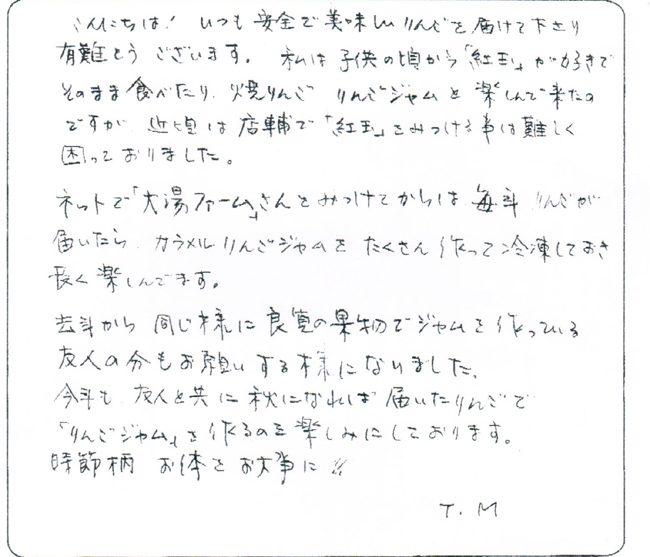 こんにちは! いつも安全で美味しいりんごを届けて下さり
有難とうございます。 私は子供の頃から「紅玉」が好きで
そのまま食べたり、焼りんご りんごジャムと楽しんで来たの
ですが 近頃は店輔で「紅玉」をみつける事は難しく
困っておりました。
ネットで「大湯ファーム」さんをみつけてからは 毎年 りんごが
届いたら カラメルりんごジャムを たくさん作って冷凍しておき
長く楽しんでます。
去年から 同じ様に良質の果物でジャムを作っている
友人の分もお願いする様になりました。
今年も 友人と共に秋になれば届いたりんごで
「りんごジャム」を作るのを楽しみにしております。
時節柄 お体をお大事に!!
T.M